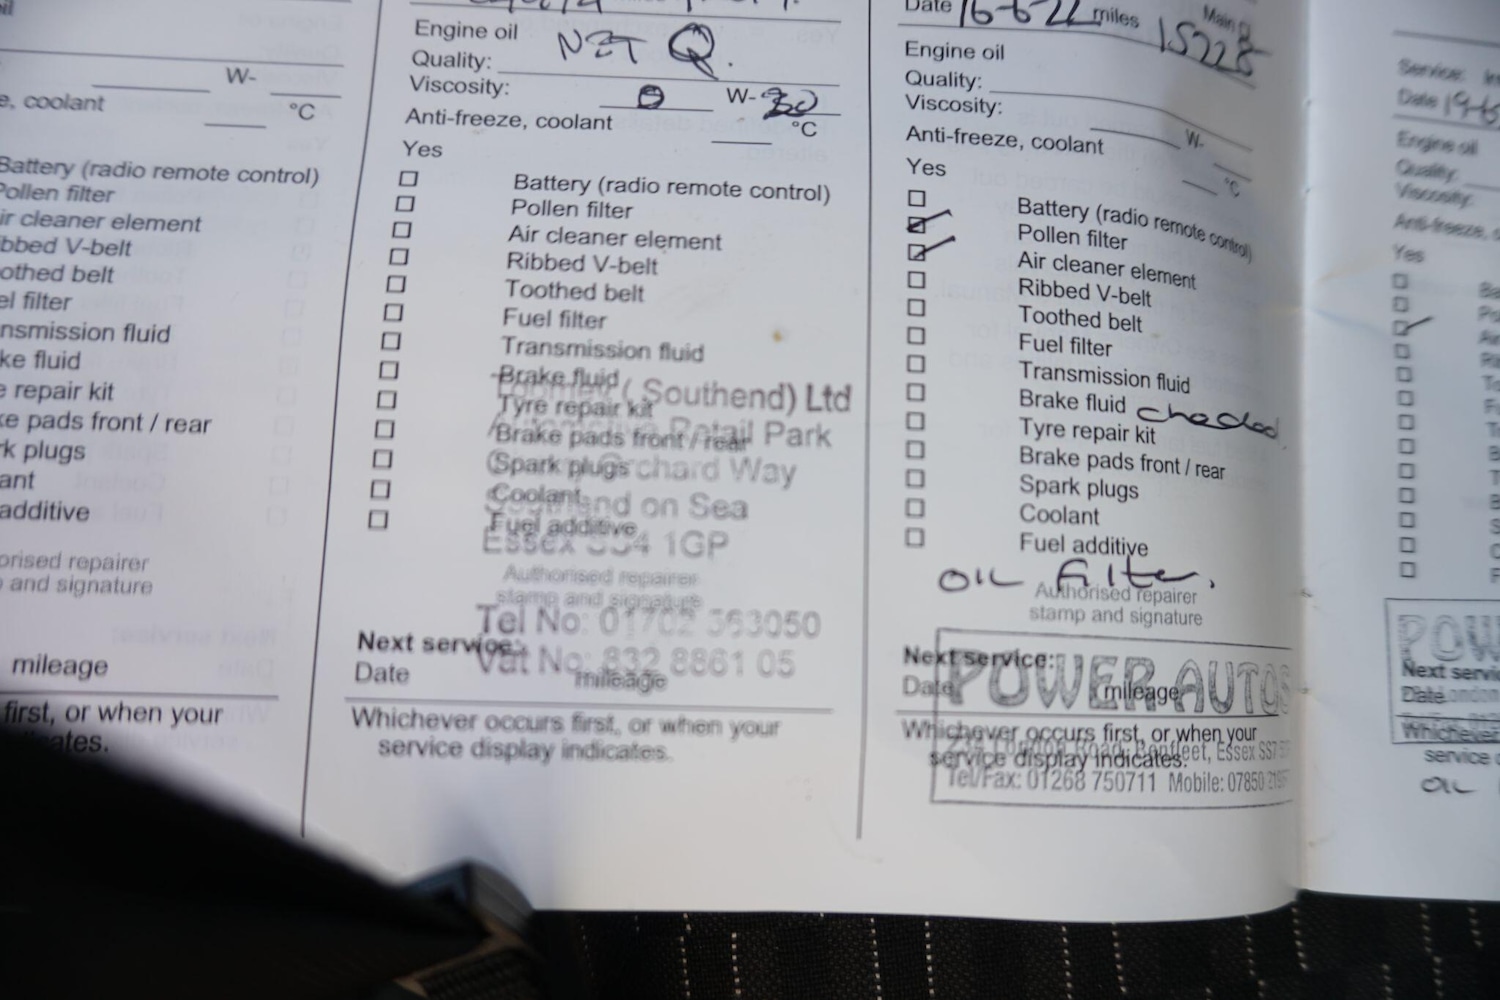 W-
e, coolant °C
Battery (radio remote control)
Pollen filter
ir cleaner element
ibbed V-belt
oothed belt
el filter
nsmission fluid
ke fluid
e repair kit
ke pads front / rear
rk plugs
ant
additive
orised repairer
and signature
mileage
first, or when your
icates.
Engine oil
Quality:
Viscosity: 0 W-30
Anti-freeze, coolant °C
Yes
Battery (radio remote control)
Pollen filter
Air cleaner element
Ribbed V-belt
Toothed belt
Fuel filter
Transmission fluid
Brake fluid
(Southend) Ltd
Tyre repair kit
Retail Park
Brake pads front / rear
Spark plugs
Orchard Way
Coolant
Southend on Sea
Fuel additive
Essex SS4 1GP
Authorised repairer
stamp and signature
Tel No: 01702 563050
Next service:
Vat No: 832 8861 05
Date mileage
Whichever occurs first, or when your
service display indicates.
Date 16-6-22 miles 15228
Engine oil
Quality:
Viscosity: W-
Anti-freeze, coolant °C
Yes
Battery (radio remote control)
Pollen filter
Air cleaner element
Ribbed V-belt
Toothed belt
Fuel filter
Transmission fluid
Brake fluid checked
Tyre repair kit
Brake pads front / rear
Spark plugs
Coolant
Fuel additive
OIL Filter.
Authorised repairer
stamp and signature
Next service:
POWER AUTOS
Date mileage
Whichever occurs first, or when your
London Road, Benfleet, Essex SS7
service display indicates.
Tel/Fax: 01268 750711 Mobile: 07850
Service:
Date 19-6
Engine oil
Quality:
Viscosity:
Anti-freeze, c
Yes
POW
Next servi
Date
Whichever
service d
OIL